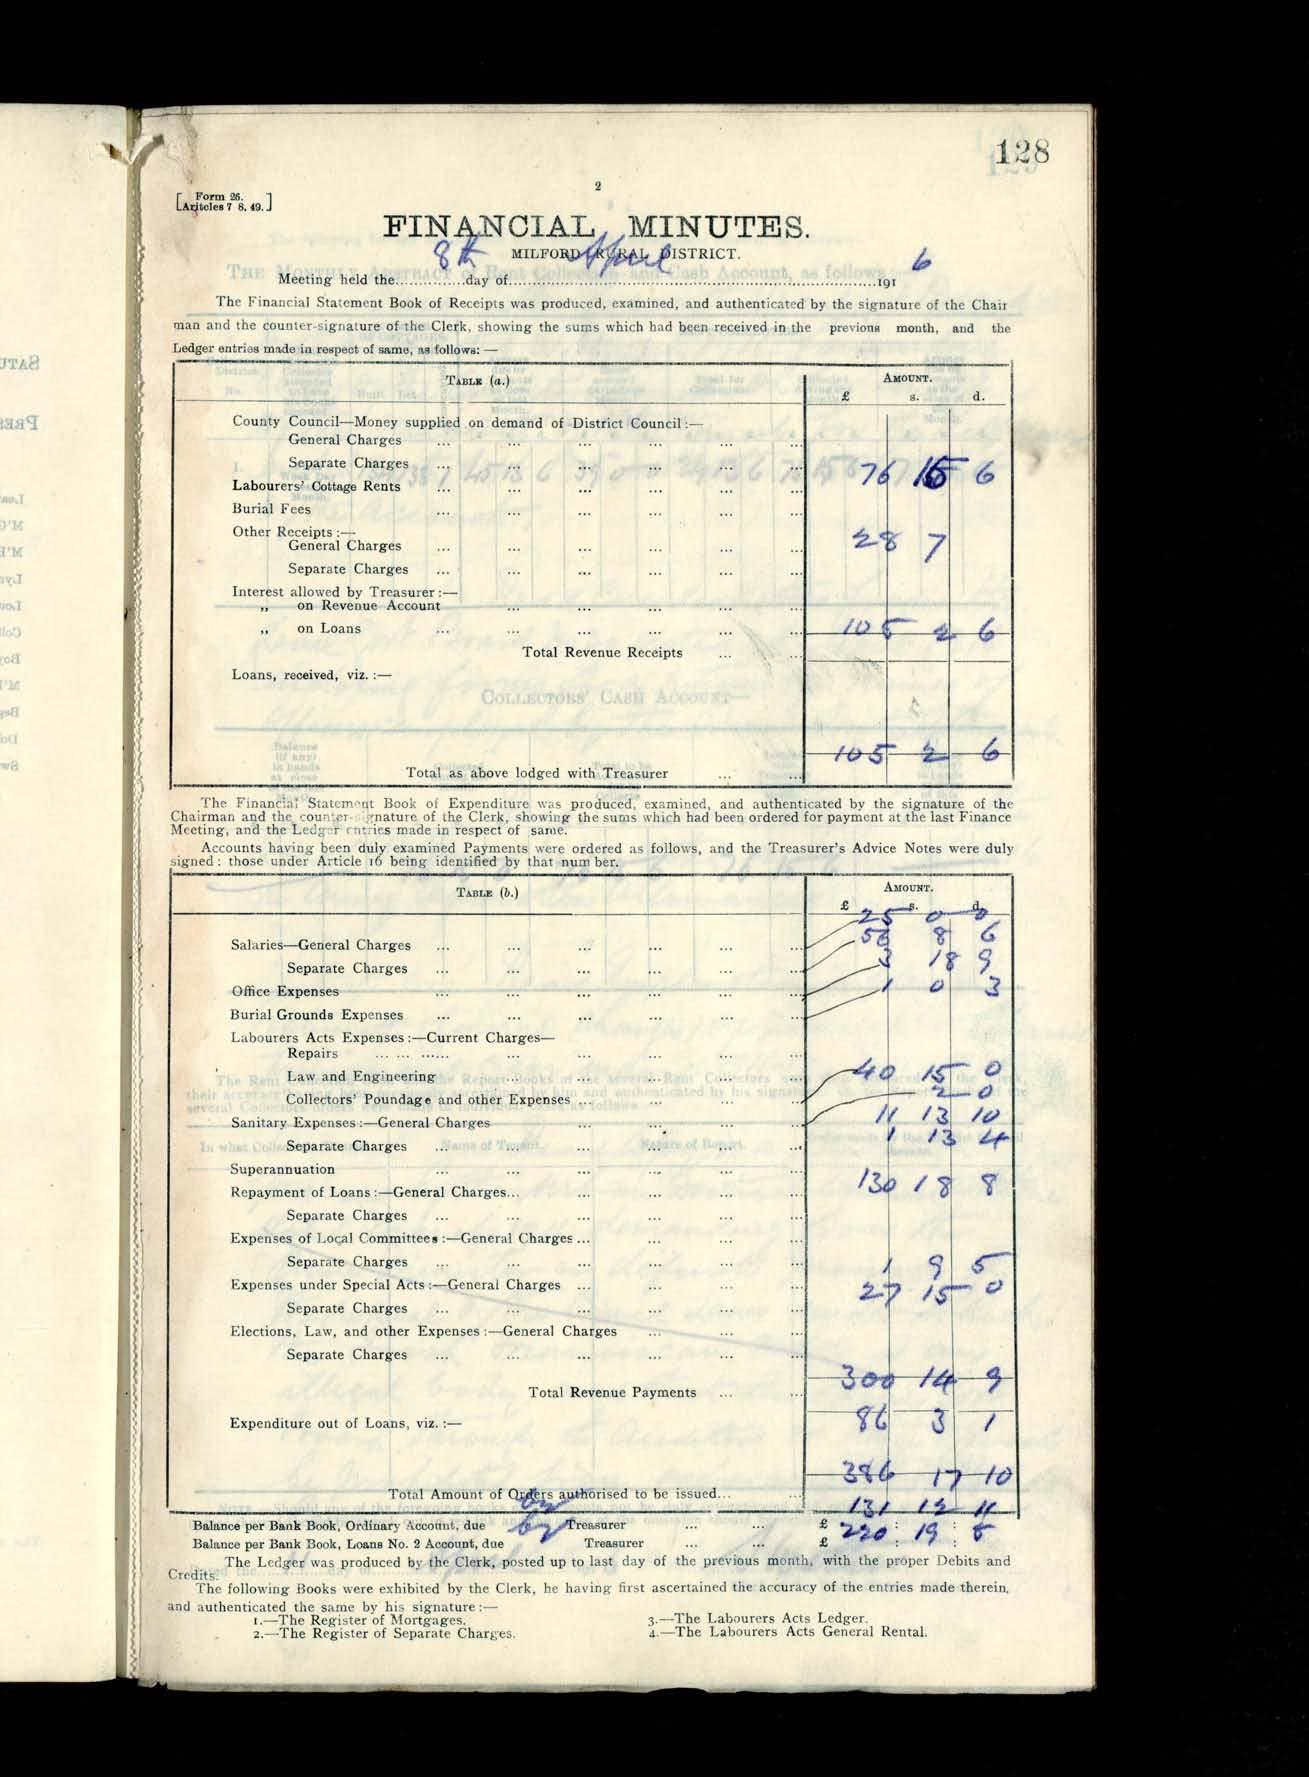 128
2
[ Form 26.
Aritcles 7 8. 49. ]
FINANCIAL MINUTES.
MILFORD RURAL DISTRICT.
Meeting held the 8th day of April 1916
The Financial Statement Book of Receipts was produced, examined, and authenticated by the signature of the Chair
man and the counter-signature of the Clerk, showing the sums which had been received in the previous month, and the
Ledger entries made in respect of same, as follows: —
TABLE (a.) AMOUNT.
£ s. d.
County Council—Money supplied on demand of District Council :—
General Charges ... ... ... ... ... ...
Separate Charges ... ... ... ... ... ... 76 15 6
Labourers' Cottage Rents ... ... ... ... ... ...
Burial Fees ... ... ... ... ... ...
Other Receipts :—
General Charges ... ... ... ... ... ... 28 7
Separate Charges ... ... ... ... ... ...
Interest allowed by Treasurer :—
„ on Revenue Account ... ... ... ... ...
„ on Loans ... ... ... ... ... ... 105 2 6
Total Revenue Receipts ... ...
Loans, received, viz. :—
105 2 6
Total as above lodged with Treasurer ... ...
The Financial Statement Book of Expenditure was produced, examined, and authenticated by the signature of the
Chairman and the counter-signature of the Clerk, showing the sums which had been ordered for payment at the last Finance
Meeting, and the Ledger entries made in respect of same.
Accounts having been duly examined Payments were ordered as follows, and the Treasurer's Advice Notes were duly
signed; those under Article 16 being identified by that number.
TABLE (b.) AMOUNT.
£ s. d.
25 0 0
Salaries—General Charges ... ... ... ... ... ... 56 8 6
Separate Charges ... ... ... ... ... ... 3 18 9
Office Expenses ... ... ... ... ... ... 1 0 3
Burial Grounds Expenses ... ... ... ... ... ...
Labourers Acts Expenses :—Current Charges—
Repairs ... ... ...... ... ... ... ... ...
Law and Engineering ... ... ... ... ... 40 15 0
Collectors' Poundage and other Expenses ... ... ... ... 2 0
Sanitary Expenses :—General Charges ... ... ... ... 11 13 10
Separate Charges ... ... ... ... ... ... 1 13 4
Superannuation ... ... ... ... ... ...
Repayment of Loans :—General Charges... ... ... ... ... 130 18 8
Separate Charges ... ... ... ... ... ...
Expenses of Local Committees :—General Charges ... ... ... ...
Separate Charges ... ... ... ... ... ... 1 9 5
Expenses under Special Acts :—General Charges ... ... ... ... 27 15 0
Separate Charges ... ... ... ... ... ...
Elections, Law, and other Expenses :—General Charges ... ... ...
Separate Charges ... ... ... ... ... ...
300 14 9
Total Revenue Payments ... ...
Expenditure out of Loans, viz. :— 86 3 1
386 17 10
Total Amount of Orders authorised to be issued... ...
Balance per Bank Book, Ordinary Account, due by Treasurer ... ... £ 131 12 11
Balance per Bank Book, Loans No. 2 Account, due by Treasurer ... ... £ 220 : 19 : 8
The Ledger was produced by the Clerk, posted up to last day of the previous month, with the proper Debits and
Credits.
The following Books were exhibited by the Clerk, he having first ascertained the accuracy of the entries made therein,
and authenticated the same by his signature :—
1.—The Register of Mortgages. 3.—The Labourers Acts Ledger.
2.—The Register of Separate Charges. 4.—The Labourers Acts General Rental.